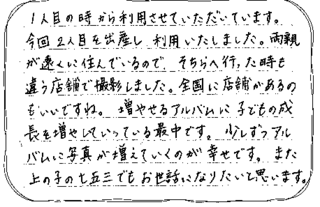 1人目の時から利用させていただいています。
今回2人目を出産し、利用いたしました。両親
が遠くに住んでいるので、そちらへ行った時も
違う店舗で撮影しました。全国に店舗があるの
もいいですね。増やせるアルバムに子どもの成
長を増やしていっている最中です。少しずつアル
バムに写真が増えていくのが幸せです。また
上の子の七五三でもお世話になりたいと思います。